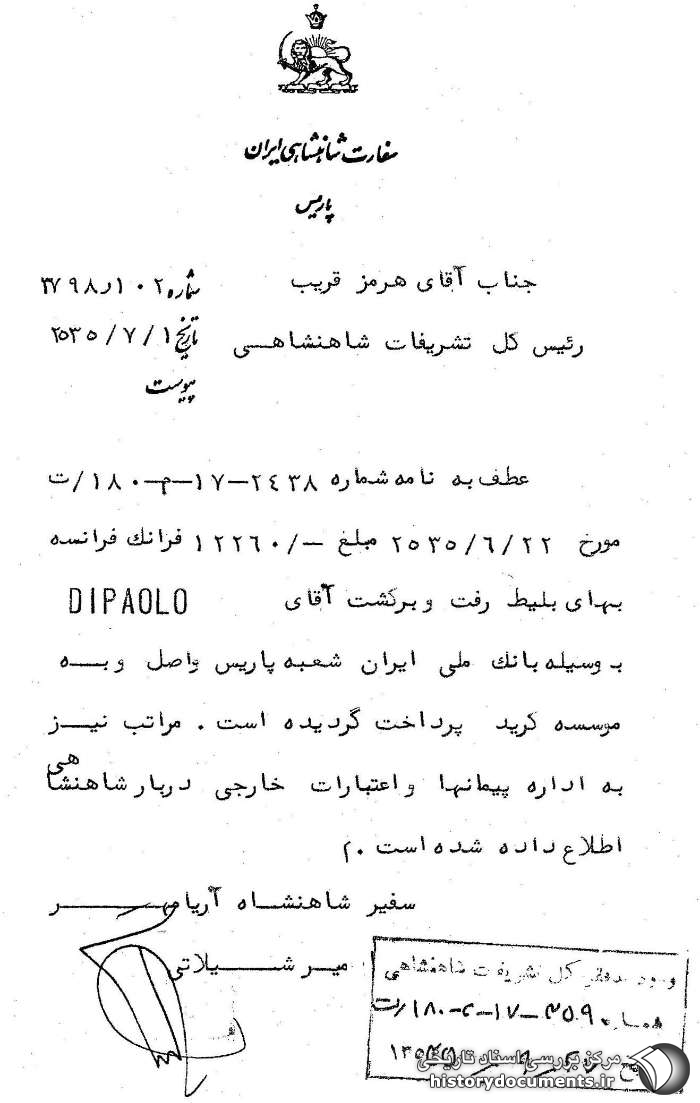 سفارت شاهنشاهی ایران
پاریس
جناب آقای هرمز قریب
شماره
رئیس کل تشریفات شاهنشاهی
تاریخ ۲۵۳۵/۷/۱
پیوست
عطف به نامه شماره ۲۴۳۸-۱۷-م-۱۸۰/ت
مورخ ۲۵۳۵/۶/۲۲ مبلغ -/۱۲۲۶۰ فرانك فرانسه
بهای بلیط رفت و برگشت آقای DIPAOLO
بوسیله بانك ملی ایران شعبه پاریس واصل و به
موسسه کرید پرداخت گردیده است . مراتب نیز
به اداره پیمانها و اعتبارات خارجی دربار شاهنشاهی
اطلاع داده شده است .
سفیر شاهنشاه آریامهر
امیر شیلاتی
ورود به دفتر کل تشریفات شاهنشاهی
شماره
مرکز بررسی اسناد تاریخی
historydocuments.ir